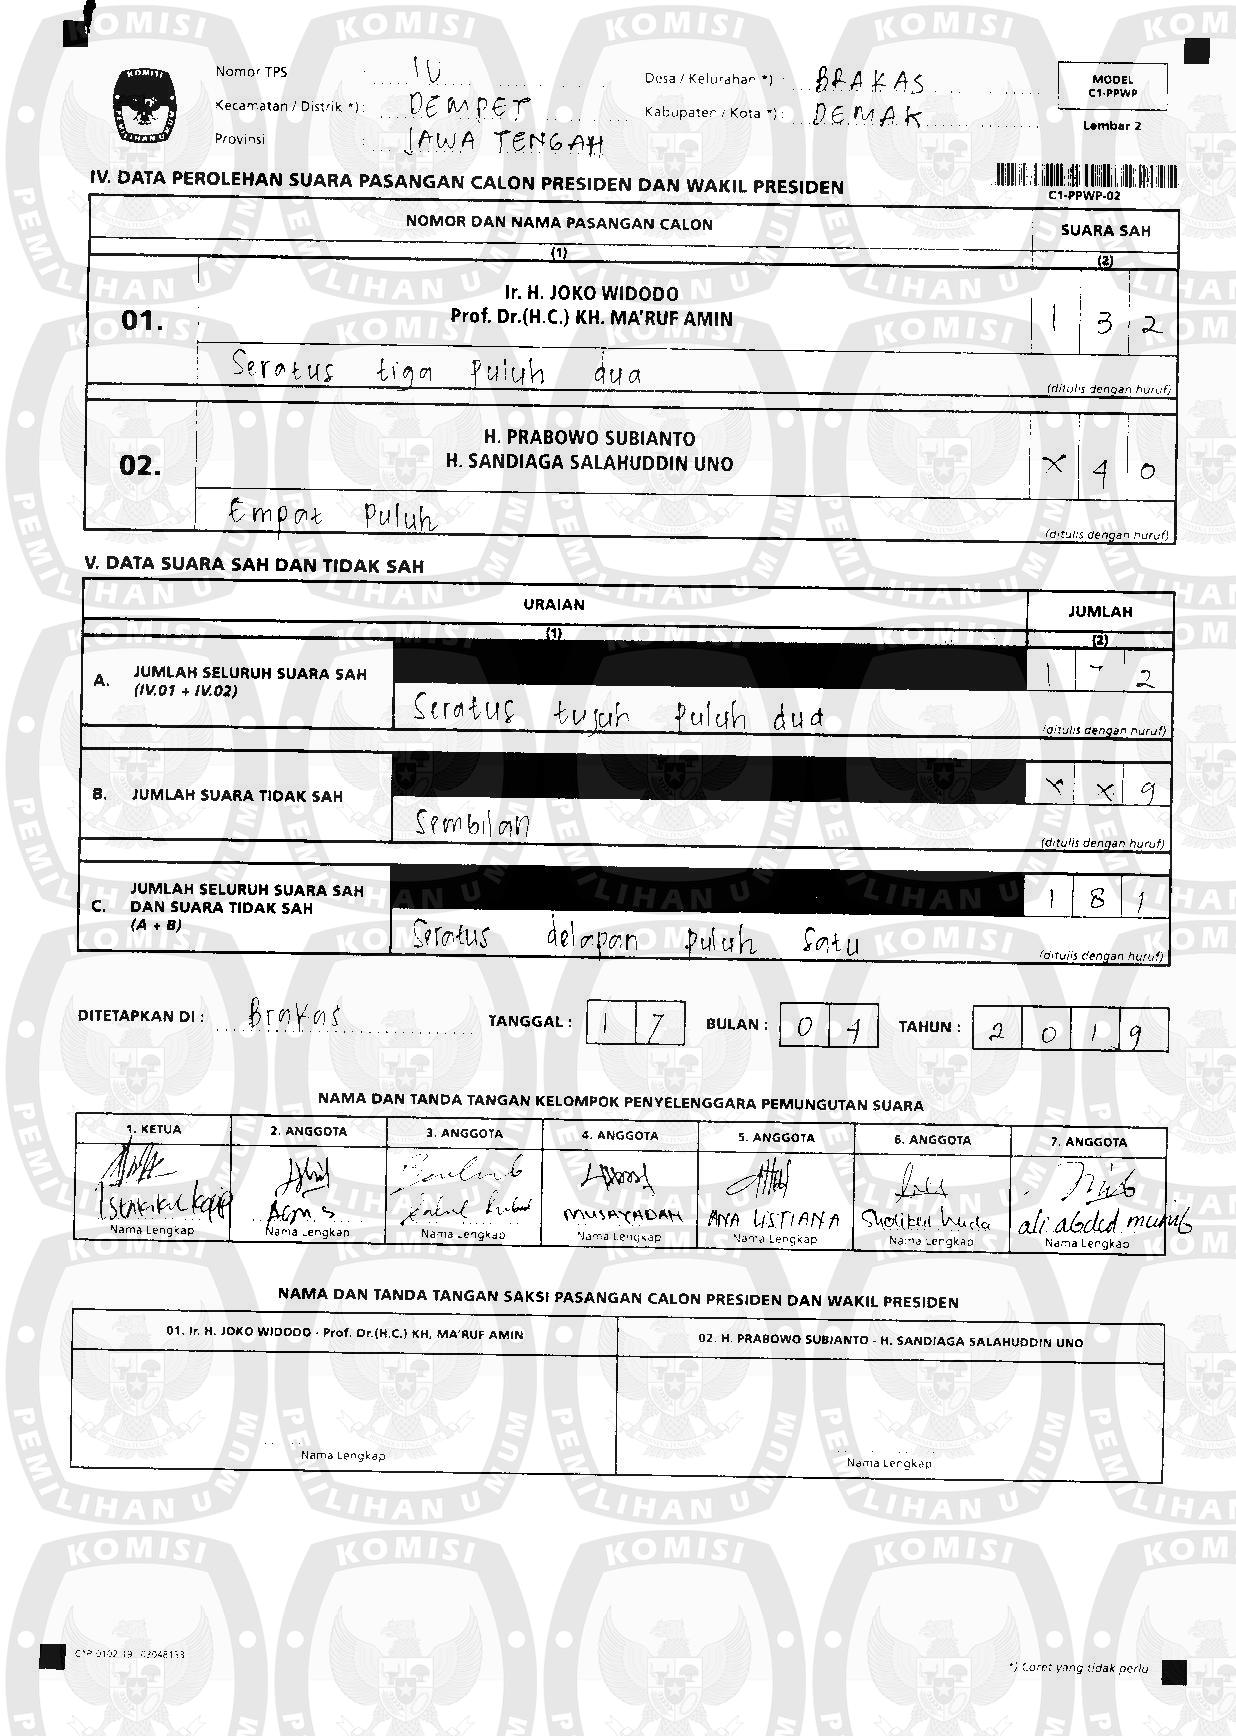 Nomor TPS : 10
Desa / Kelurahan *) : BRAKAS
Kecamatan / Distrik *) : DEMPET
Kabupaten / Kota *) : DEMAK
Provinsi : JAWA TENGAH
MODEL
C1-PPWP
Lembar 2
C1-PPWP-02
IV. DATA PEROLEHAN SUARA PASANGAN CALON PRESIDEN DAN WAKIL PRESIDEN
NOMOR DAN NAMA PASANGAN CALON SUARA SAH
(1) (2)
01. Ir. H. JOKO WIDODO
Prof. Dr.(H.C.) KH. MA'RUF AMIN 1 3 2
Seratus tiga puluh dua
(ditulis dengan huruf)
02. H. PRABOWO SUBIANTO
H. SANDIAGA SALAHUDDIN UNO X 4 0
Empat Puluh
(ditulis dengan huruf)
V. DATA SUARA SAH DAN TIDAK SAH
URAIAN JUMLAH
(1) (2)
A. JUMLAH SELURUH SUARA SAH
(IV.01 + IV.02) 1 7 2
Seratus tujuh puluh dua
(ditulis dengan huruf)
B. JUMLAH SUARA TIDAK SAH X X 9
Sembilan
(ditulis dengan huruf)
C. JUMLAH SELURUH SUARA SAH
DAN SUARA TIDAK SAH
(A + B) 1 8 1
Seratus delapan puluh Satu
(ditulis dengan huruf)
DITETAPKAN DI : Brakas TANGGAL : 17 BULAN : 04 TAHUN : 2019
NAMA DAN TANDA TANGAN KELOMPOK PENYELENGGARA PEMUNGUTAN SUARA
1. KETUA 2. ANGGOTA 3. ANGGOTA 4. ANGGOTA 5. ANGGOTA 6. ANGGOTA 7. ANGGOTA
MUSAYADAH ANA LISTIANA Sholikul huda ali abdul munib
Nama Lengkap Nama Lengkap Nama Lengkap Nama Lengkap Nama Lengkap Nama Lengkap Nama Lengkap
NAMA DAN TANDA TANGAN SAKSI PASANGAN CALON PRESIDEN DAN WAKIL PRESIDEN
01. Ir. H. JOKO WIDODO - Prof. Dr.(H.C.) KH. MA'RUF AMIN
02. H. PRABOWO SUBIANTO - H. SANDIAGA SALAHUDDIN UNO
Nama Lengkap Nama Lengkap
*) Coret yang tidak perlu